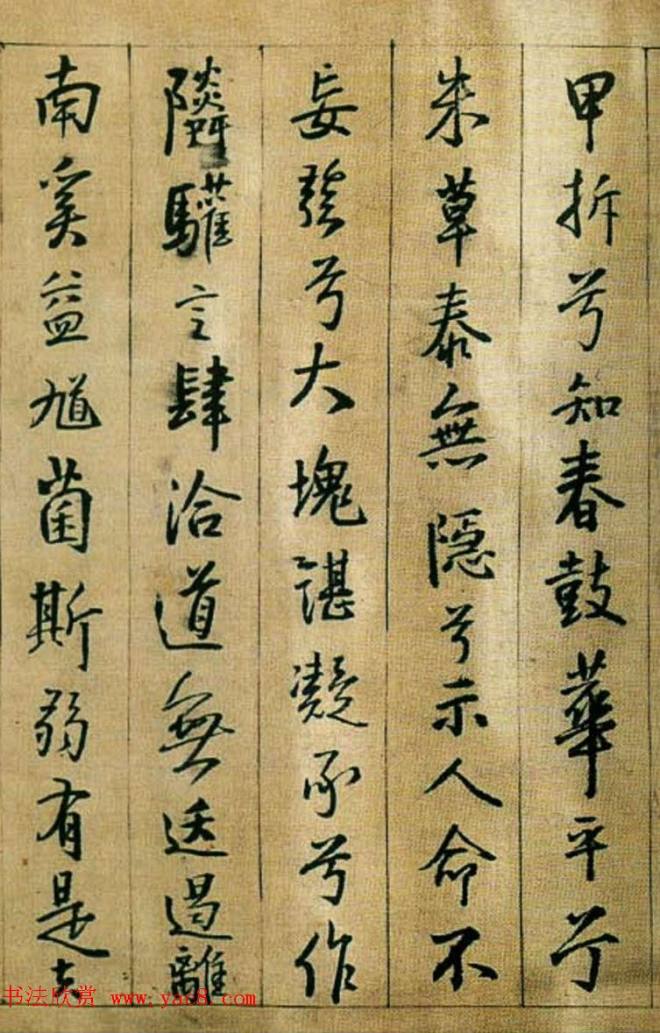 甲拆兮知春鼓華平兮
朱草泰無隱兮示人命不
妄發兮大塊諶凝承兮作
隣驩言肆洽道無适遏離
南奚益馗菌斯弱有是
书法欣赏 www.yac8.com